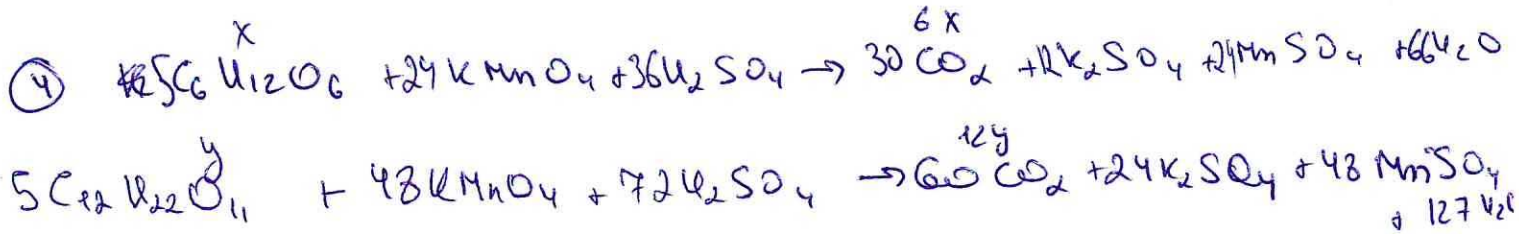 x 6x
④ 5C₆H₁₂O₆ + 24KMnO₄ + 36H₂SO₄ → 30CO₂ + 12K₂SO₄ + 24MnSO₄ + 66H₂O
y 12y
5C₁₂H₂₂O₁₁ + 48KMnO₄ + 72H₂SO₄ → 60CO₂ + 24K₂SO₄ + 48MnSO₄
+ 127H₂O